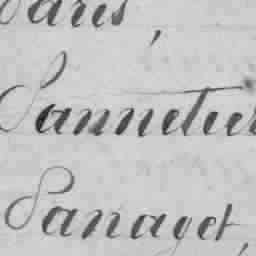 Paris,
Pannetier
Panaget,